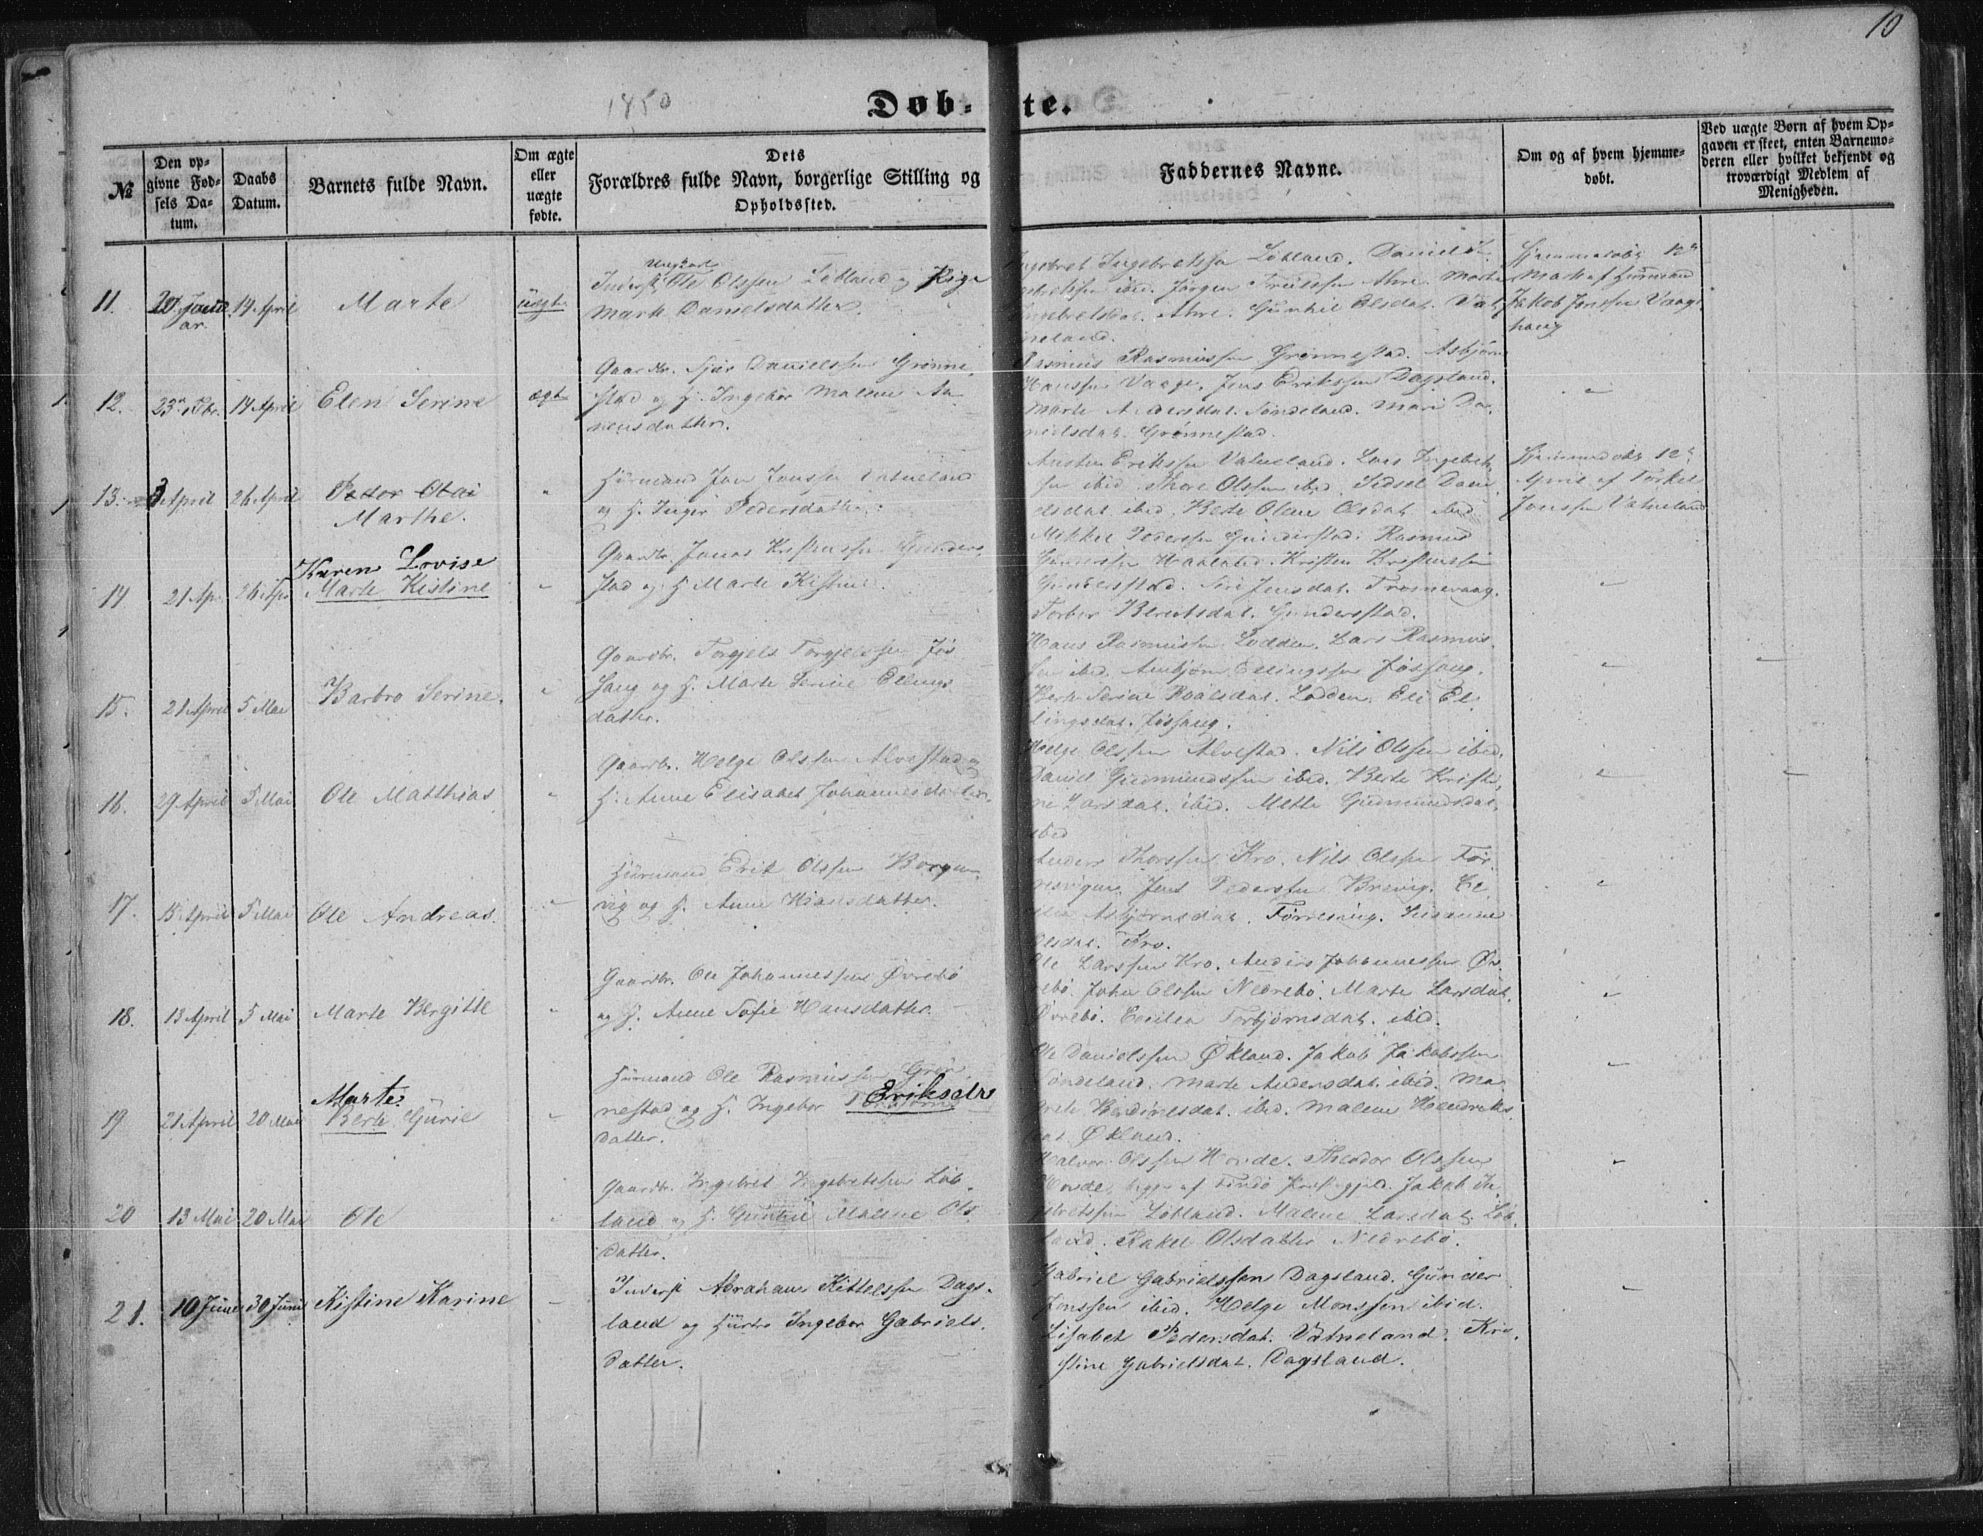 10
1850
Døbte.
№
Den opgivne Fødsels Datum.
Daabs Datum.
Barnets fulde Navn.
Om ægte eller uægte fødte.
Dets Forældres fulde Navn, borgerlige Stilling og Opholdssted.
Faddernes Navne.
Om og af hvem hjemmedøbt.
Ved uægte Børn af hvem Opgaven er skeet, enten Barnemoderen eller hvilket bekjendt og troværdigt Medlem af Menigheden.
11. 14 April Marte uægte
Ungkarl
Inderst Ole Olssen Løtland og Pige
Marte Danielsdatter.
Ingebret Ingebretssen Løtland. Daniel
ibid. Jørgen Ahre. Marte
Ahre. Gunhil Olsdat. Vat
neland.
Hjemmedøbt
Marts af Huusmand
Jakob Jonssen Vaage
haug
12. 23 Febr. 14 April Elen Serine ægte
Gaardbr. Sjur Danielssen Grønne
stad og H. Ingebor Malene Aa
nensdatter.
Rasmus Rasmussen Grønnestad. Asbjørn
Hanssen Vaage. Jens Erikssen Dagsland.
Marte Andersdat. Søndeland. Mari Da
nielsdat. Grønnestad.
13. 3 April 26 April Peder Obai
Marthe.
Huusmand Jon Jonssen Vatneland
og H. Inger Pedersdatter.
Austen Erikssen Vatneland. Lars Ingebret
sen ibid. Thore Olssen ibid. Sidsel Dani
elsdat. ibid. Berte Olene Olsdat. ibid.
Hjemmedøbt 12te
April af Torkel
Jonssen Vatneland
14 21 Apr. 26 Apr. Karen Lovise
Marte Kistine
Gaardbr. Jonas Kristenssen Gunders
stad og H. Marte Kistine
Mikkel Pederssen Gunderstad. Rasmus
Gunderssen Haaland. Kristen Kristenssen
Gunderstad. Siri Jensdat. Tromevaag.
Torbor Berntsdat. Gunderstad.
15. 21 April 5 Mai Barbro Serine.
Gaardbr. Torgjels Torgjelssen Jøs
sang og H. Marte Serine Ellings
datter.
Hans Rasmussen Lodden. Lars Rasmus
sen ibid. Anbjørn Ellingssen Jøssang.
Berte Serine Roalsdat. Lodden. Eli El
lingsdat. Jøssang.
16. 29 April 5 Mai Ole Matthias
Gaardbr. Helge Olssen Alvestad og
H. Anne Elisabet Johannesdatter.
Helge Olssen Alvestad. Nils Olssen ibid.
Daniel Gudmundssen ibid. Berte Kristi
ne Larsdat. ibid. Mette Gudmundsdat.
ibid
17. 15 April 5 Mai Ole Andreas.
Huusmand Erik Olssen Borgen
vig og H. Anne Hansdatter.
Anders Thorssen Kro. Nils Olssen Før
resvigen. Jens Pederssen Brevig. Ce
cilia Asbjørnsdat. Førresvig. Susanne
Olsdat. Kro.
18. 13 April 5 Mai Marte Bergitte
Gaardbr. Ole Johannessen Øvrebø
og H. Anne Sofie Hansdatter.
Ole Larssen Kro. Anders Johannessen Øv
rebø. John Olssen Nedrebø. Marte Larsdat.
Øvrebø. Cecilia Torbjørnsdat. ibid.
19 21 April 20 Mai Marte.
Berte Gurie
Huusmand Ole Rasmussen Grøn
nestad og H. Ingebor Eriksdtr
datter.
Ole Danielssen Økland. Jakob Jakobssen
Søndeland. Marte Andersdat. ibid. Ma
ibid. Malene Hendriks
dat. Økland.
20 13 Mai 20 Mai Ole
Gaardbr. Ingebret Ingebretssen Løt
land og H. Gunhil Malene Ols
datter.
Halvor Olssen Horde. Theodor Olssen
Horde, begge af Findø Præstegjeld. Jakob In
gebretssen Løtland. Malene Larsdat. Løt
land. Rakel Olsdatter Nedrebø.
21. 10 Juni 30 Juni Kistine Karine
Inderst Abraham Kittelssen Dags
land og Hustru Ingebor Gabriels
datter.
Gabriel Gabrielssen Dagsland. Gunder
Jonssen ibid. Helge Monssen ibid.
Lisabet Pedersdat. Vatneland. Kri
stine Gabrielsdat. Dagsland.